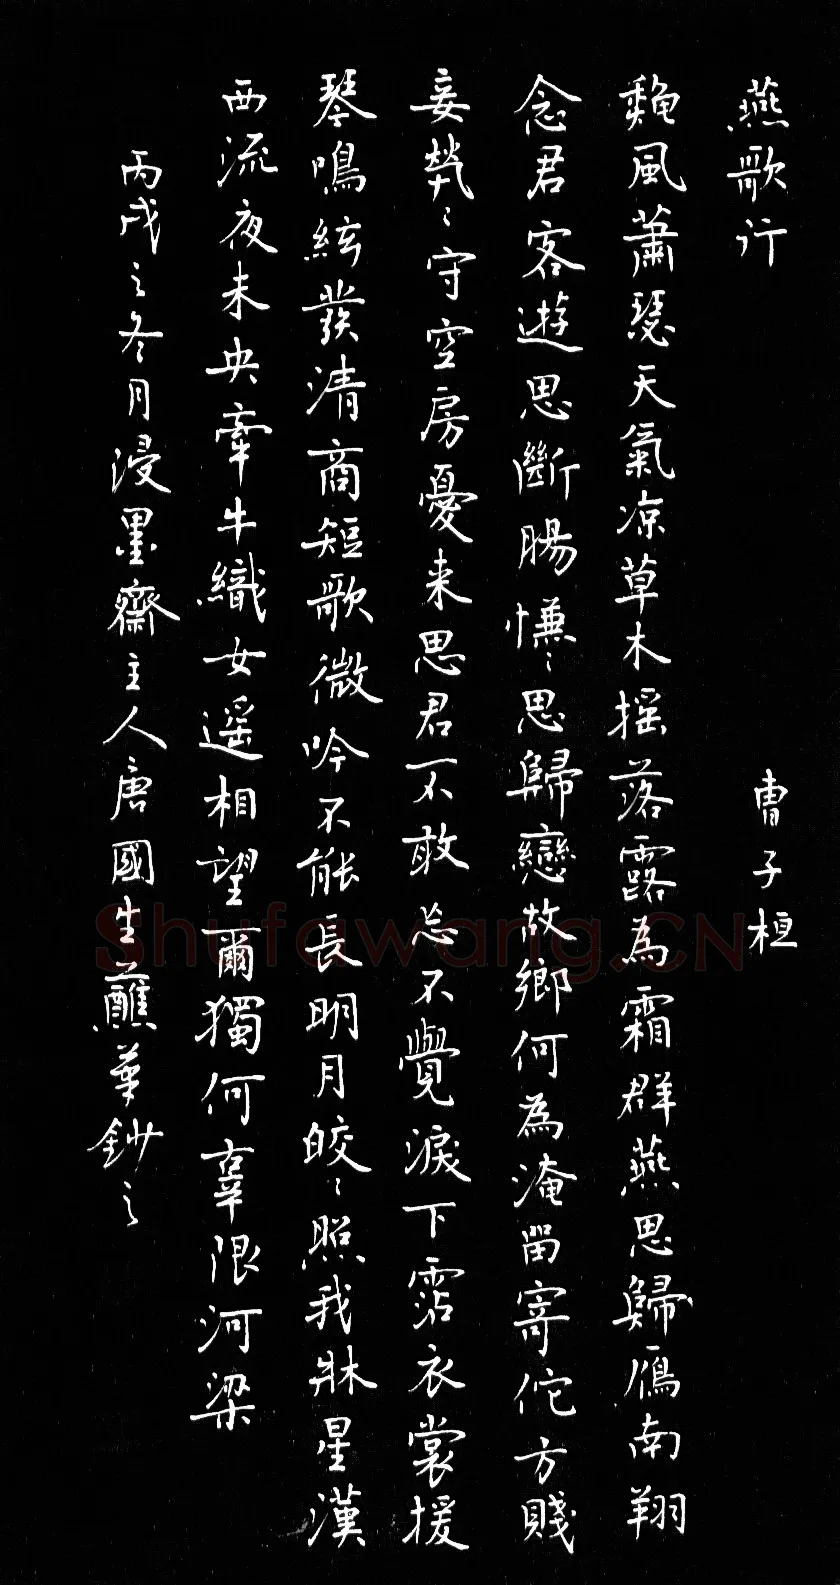 燕歌行
曹子桓
秌風蕭瑟天氣凉草木摇落露為霜群燕思歸鴈南翔
念君客遊思斷腸慊〻思歸戀故鄉何為淹留寄佗方賤
妾煢〻守空房憂来思君不敢忘不覺淚下霑衣裳援
琴鳴絃發清商短歌微吟不能長明月皎〻照我牀星漢
西流夜未央牽牛織女遥相望爾獨何辜限河梁
丙戌之冬月浸墨齋主人唐國生蘸華鈔之
Shufawang.CN